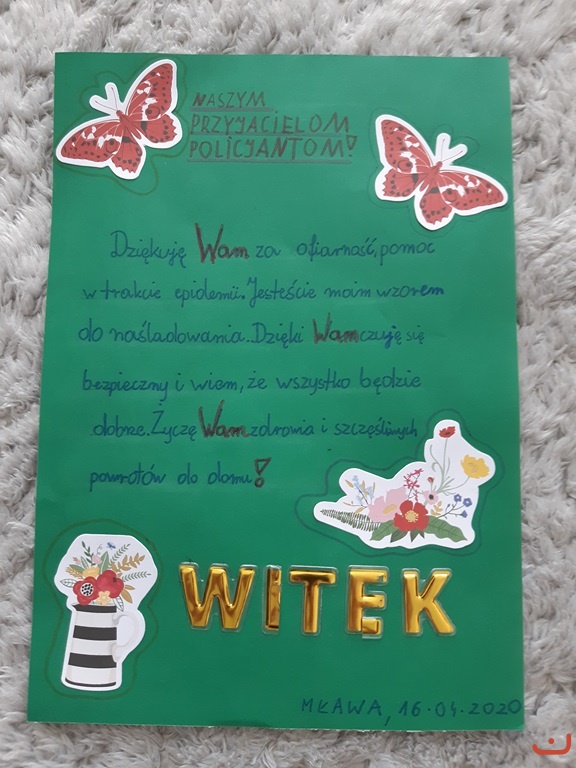 NASZYM
PRZYJACIELOM
POLICJANTOM!
Dziękuję Wam za ofiarność, pomoc
w trakcie epidemii. Jesteście moim wzorem
do naśladowania. Dzięki Wam czuję się
bezpieczny i wiem, że wszystko będzie
dobrze. Życzę Wam zdrowia i szczęśliwych
powrotów do domu!
WITEK
MŁAWA, 16.04.2020